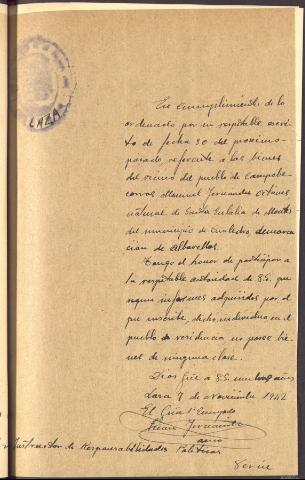 LAZA
En cumplimiento de lo
ordenado por su respetable escri-
to de fecha 30 del proximo
pasado referente a los bienes
del vecino del pueblo de Campobe-
cerros Manuel Fernandez
natural de Santa Eulalia de Montes
del municipio de Cualedro, demarca-
cion de Albarellos.
Tengo el honor de participar a
la respetable autoridad de S.S. que
segun informes adquiridos por el
que suscribe, dicho individuo en el
pueblo de residencia, no posee bie-
nes de ninguna clase.
Dios gue a S.S. muchos años
Laza 7 de Noviembre 1942
El Guardia 1º Encargado
Fernandez
Instructor de Responsabilidades Politicas